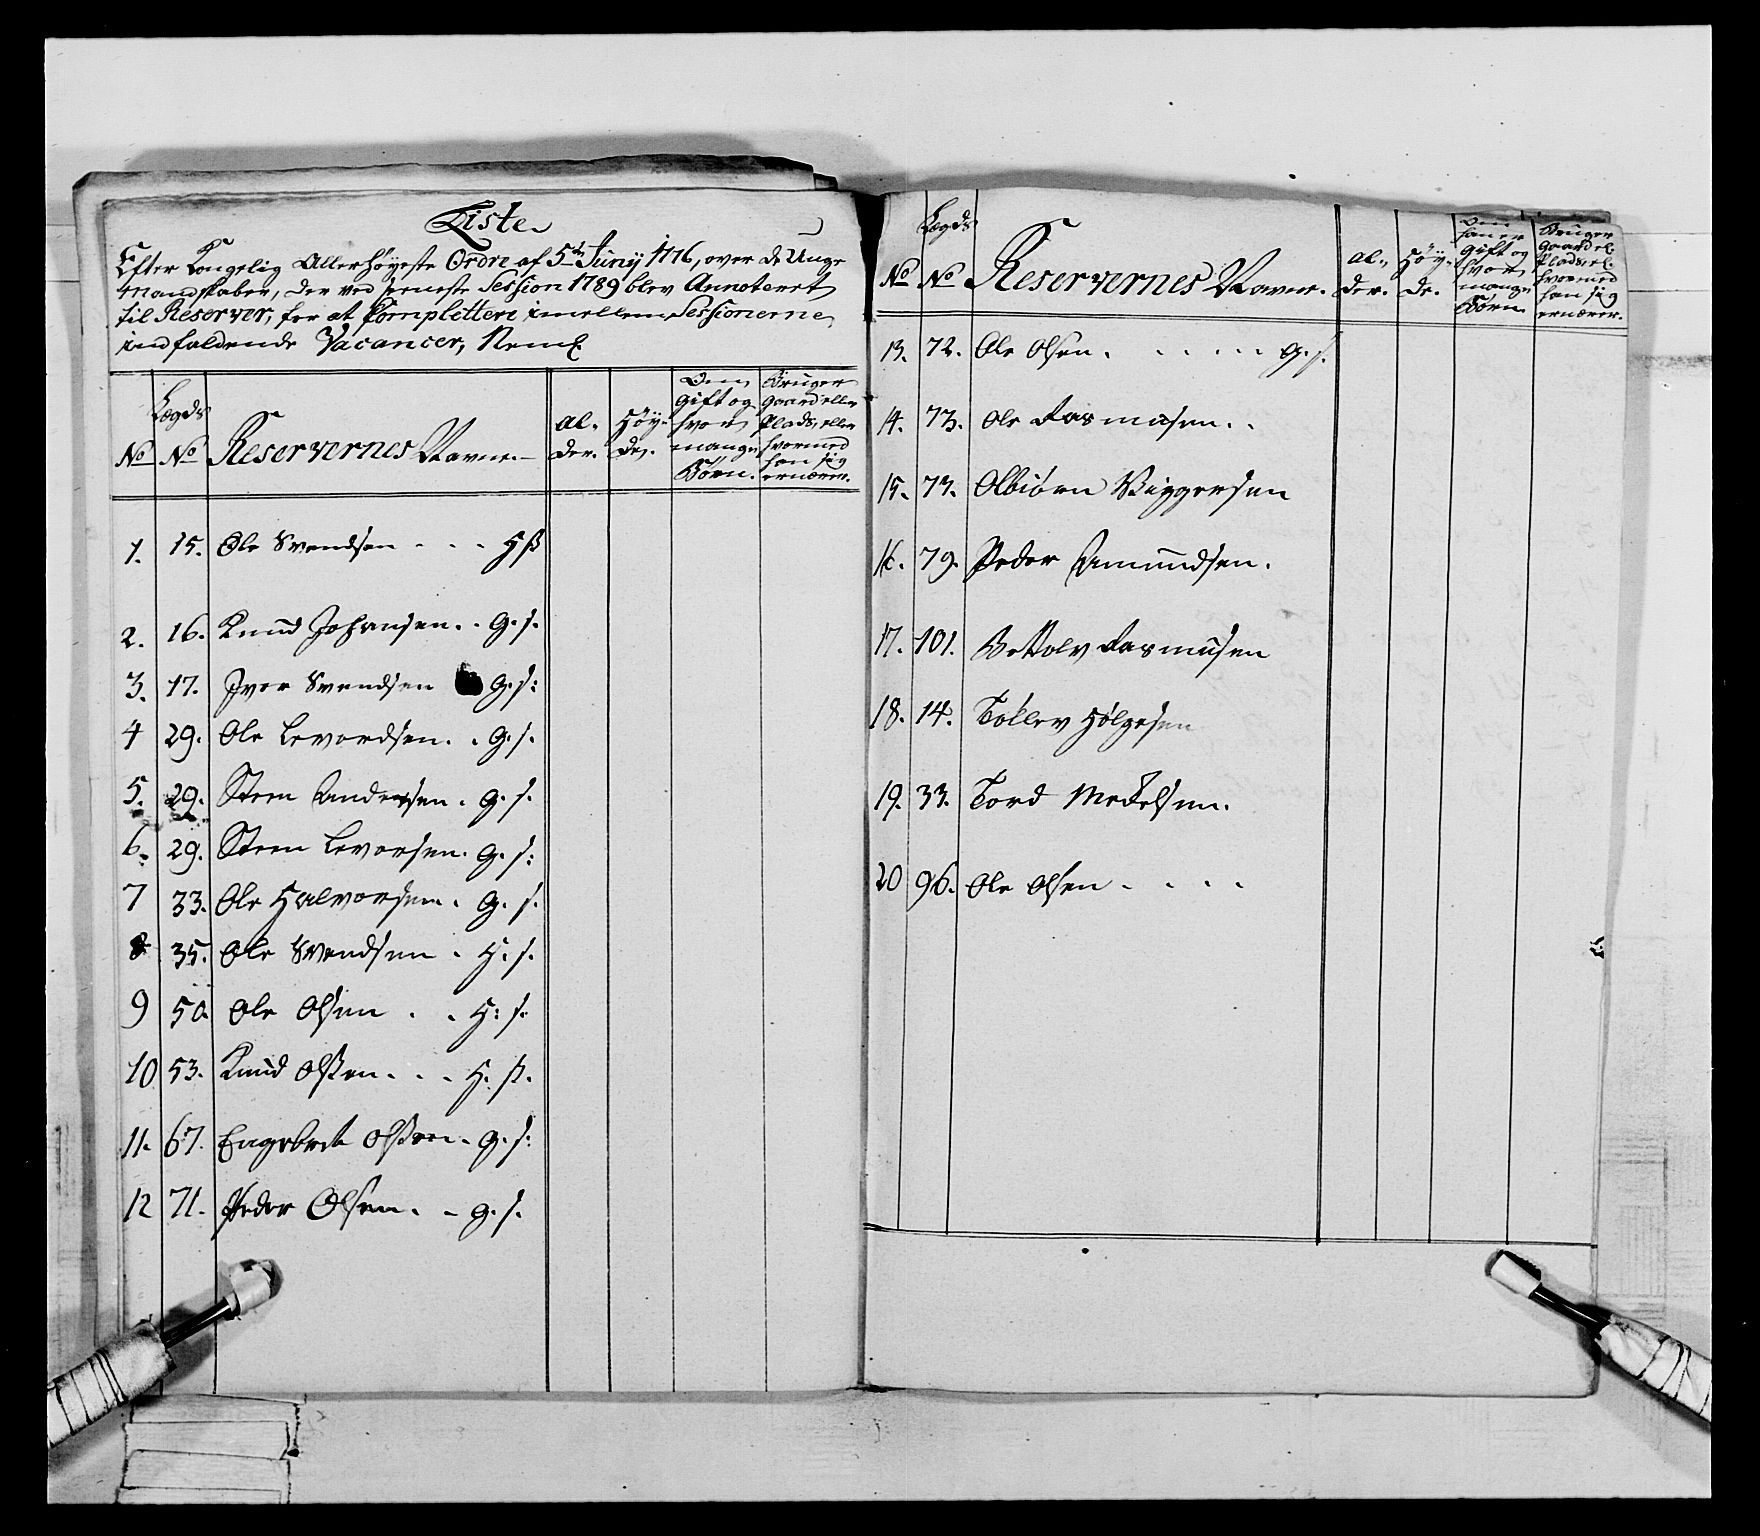 Liste
Efter Kongelig Allerhøyeste Ordre af 5te Junij 1776, over de Unge
Mandskaber, der ved seneste Session 1789 blev Annoteret
til Reserver, for at Complettere imellem Sessionerne
indfaldende Vacancer, Neml
No
Lægds No
Reservernes Navne.
Al-
der.
Høy-
de.
Om
gift og
hvor
mange
Børn.
Bruger
gaard eller
Plads, eller
hvormed
han sig
ernærer.
1. 15. Ole Svendsen - - - H ß
2. 16. Knud Johansen. - G. s.
3. 17. Iver Svendsen G. s:
4 29. Ole Levordsen. . G. s.
5. 29. Steen Andersen. G. s.
6. 29. Steen Levorsen. G. s:
7 33. Ole Halvorsen. G. s.
8 35. Ole Svendsen . H. s.
9 50. Ole Olsen . . H: s:
10 53. Knud Olßen. . - H. ß.
11. 67. Engebret Olßen. G. s:
12 71. Peder Olsen. - G. s.
Lægds
No No Reservernes Navne.
Al-
der.
Høy-
de.
Om
han er
gift og
hvor
mange
Børn.
Bruger
gaard el.
Plads, el.
hvormed
han sig
ernærer.
13. 72. Ole Olsen. . . . . . G. s.
14. 73. Ole Rasmusen. .
15. 73. Olbiørn Viggersen
16. 79. Peder Amundsen.
17. 101. Bottolv Rasmusen
18. 14. Tollev Hølgesen
19. 33. Tord Mekelsen.
20 96. Ole Olsen - . . .